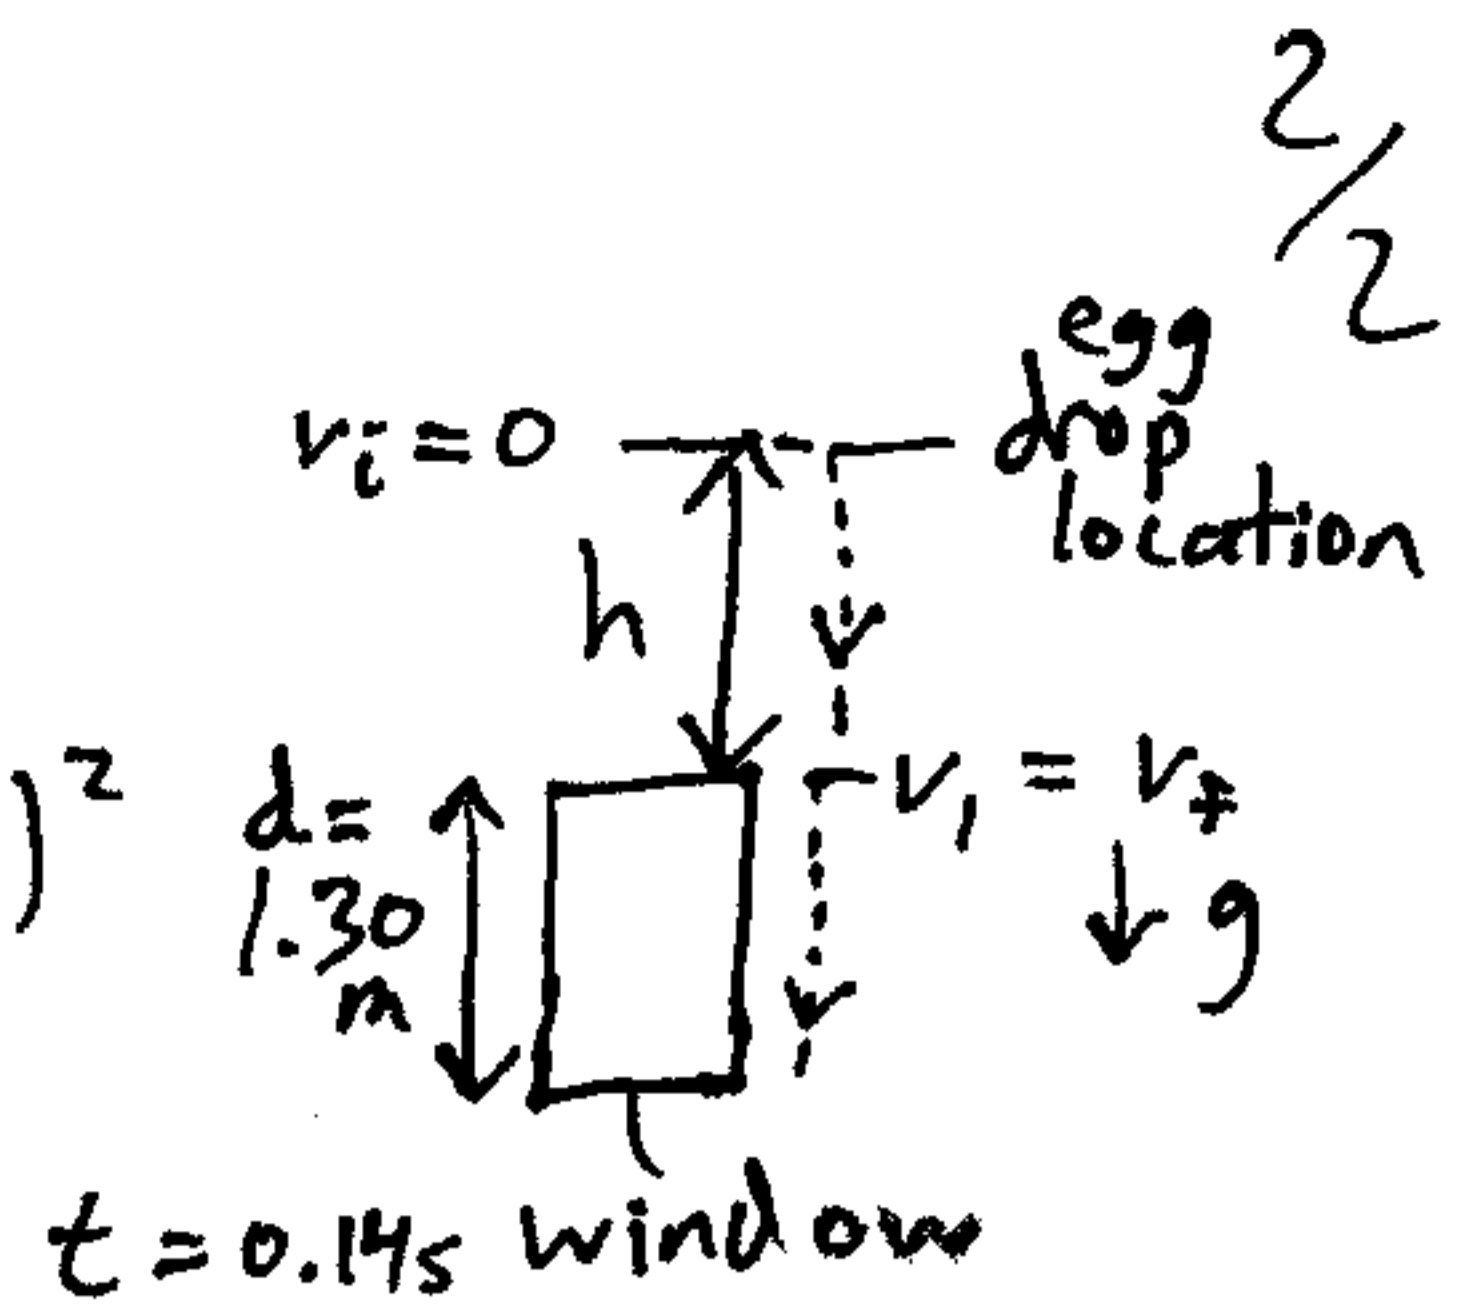 2/2
egg
drop
location
vᵢ = 0
h
)²
d =
1.30
m
v₁ = v_f
↓ g
t = 0.14s
window